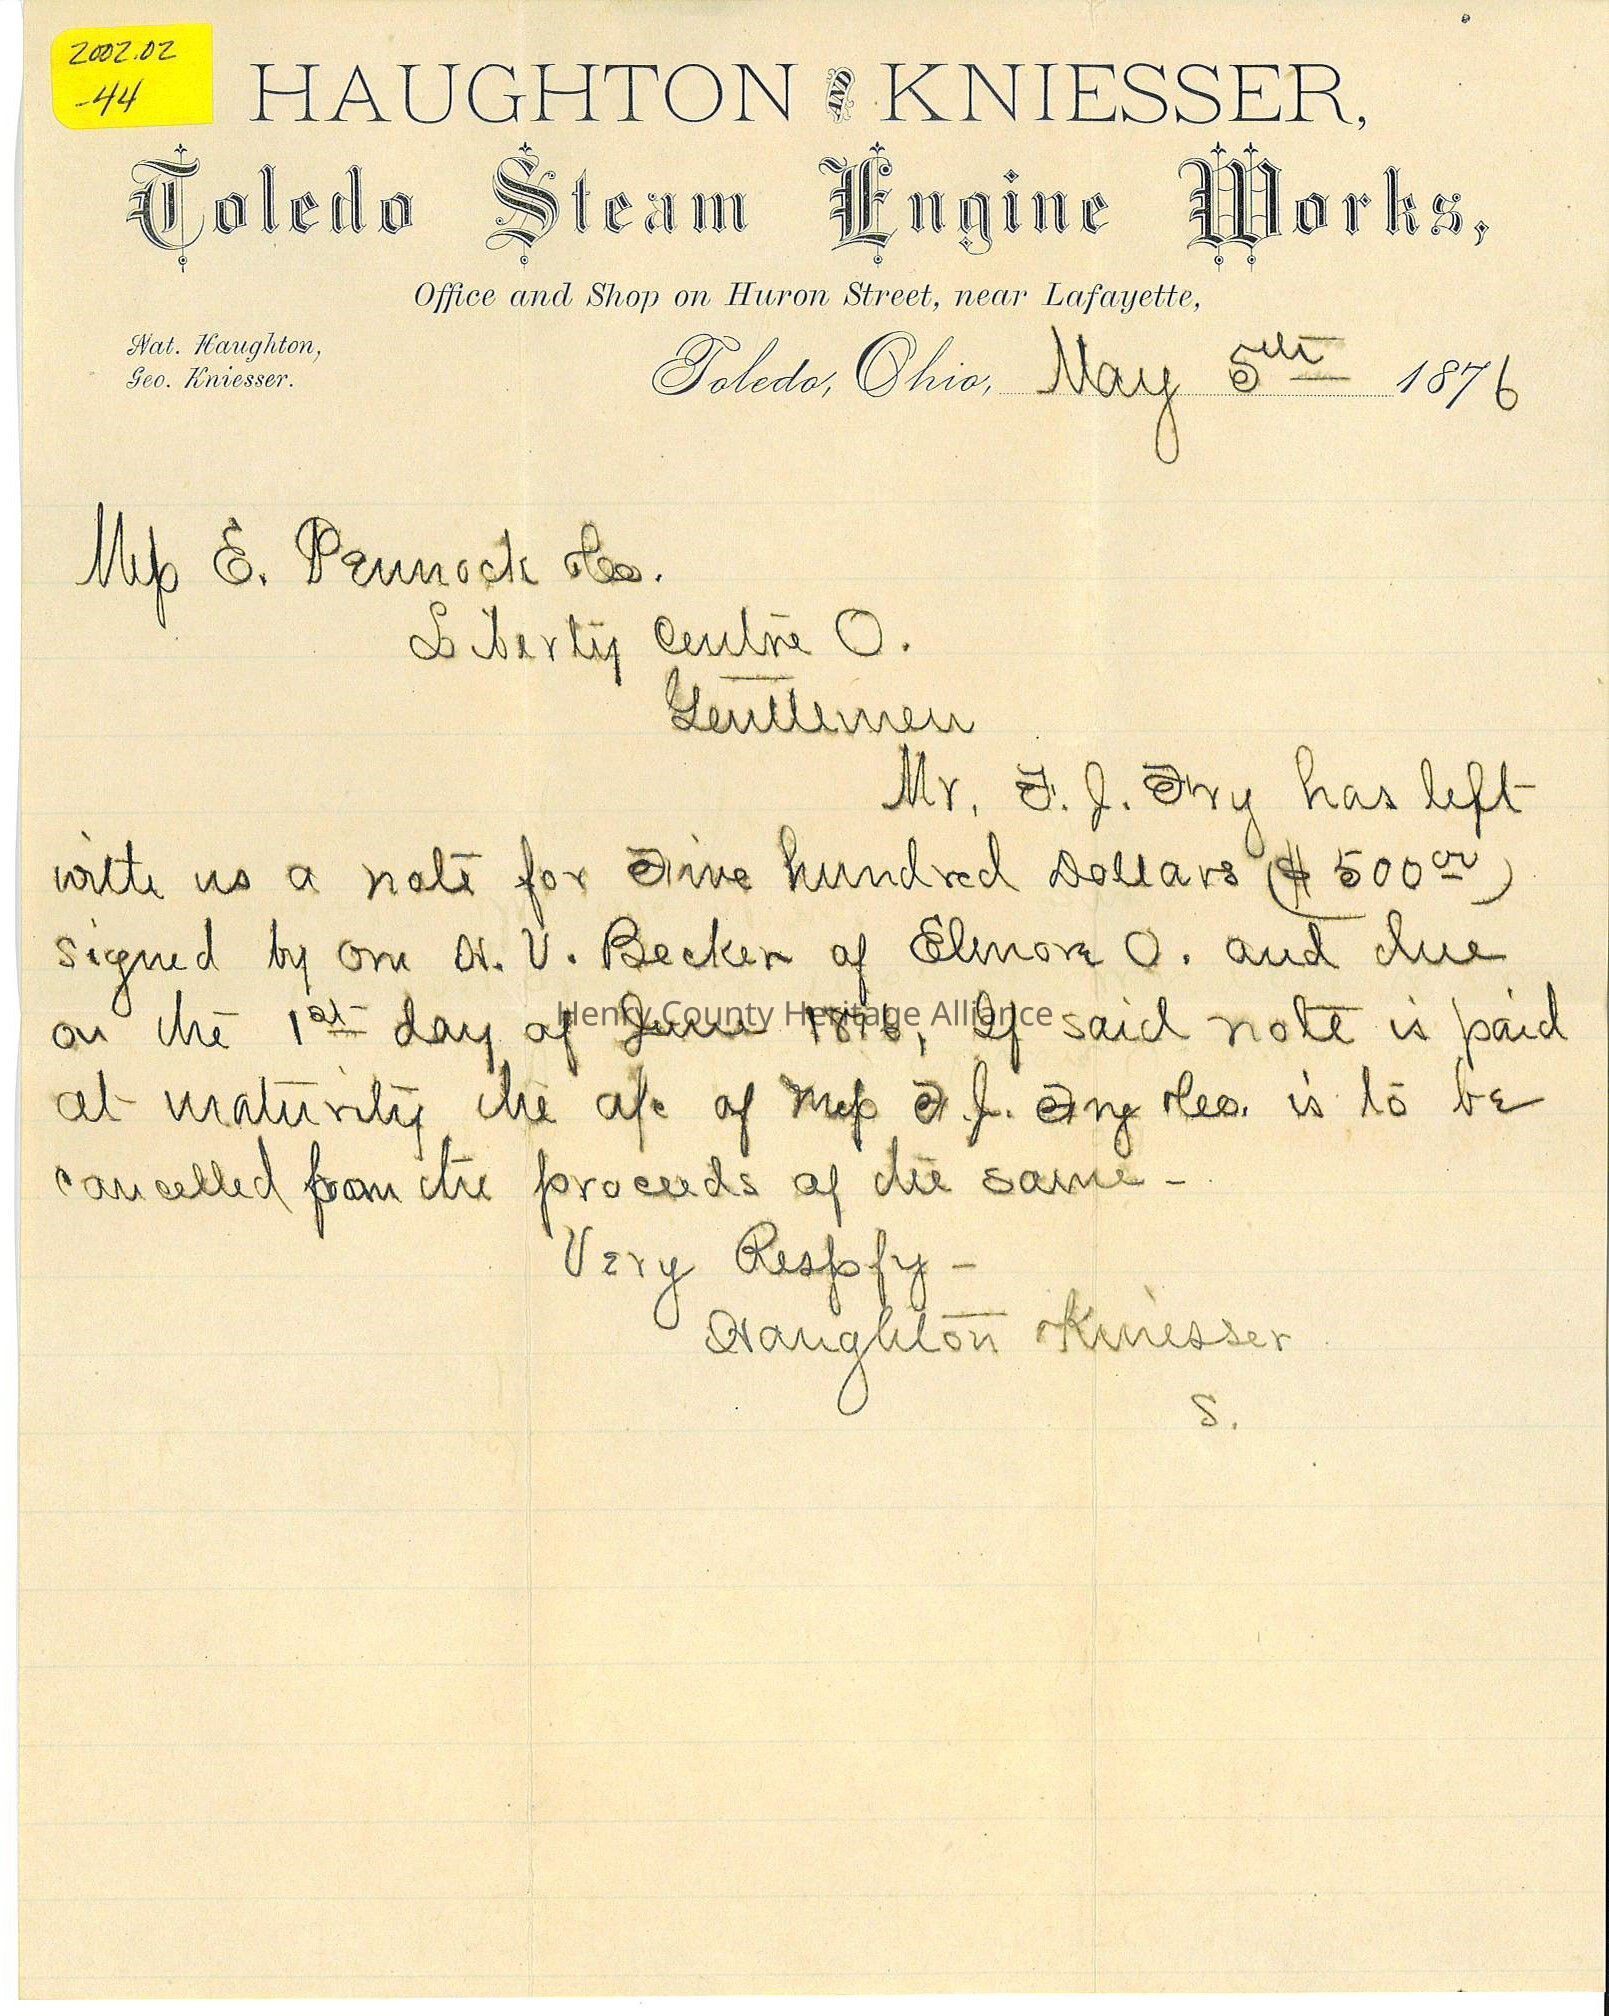 2002.02
-44
HAUGHTON AND KNIESSER,
Toledo Steam Engine Works,
Office and Shop on Huron Street, near Lafayette,
Nat. Haughton,
Geo. Kniesser.
Toledo, Ohio, May 5th 1876
Mess E. Pennock & Co.
Liberty Centre O.
Gentlemen
Mr. F. J. Fry has left
with us a note for Five hundred Dollars ($500 00)
signed by one H. V. Becker of Elmore O. and due
on the 1st day of June 1876, If said note is paid
at maturity the a/c of Mess F. J. Fry & Co. is to be
cancelled from the proceeds of the same -
Very Respfy -
Haughton & Kniesser
S.
Henry County Heritage Alliance